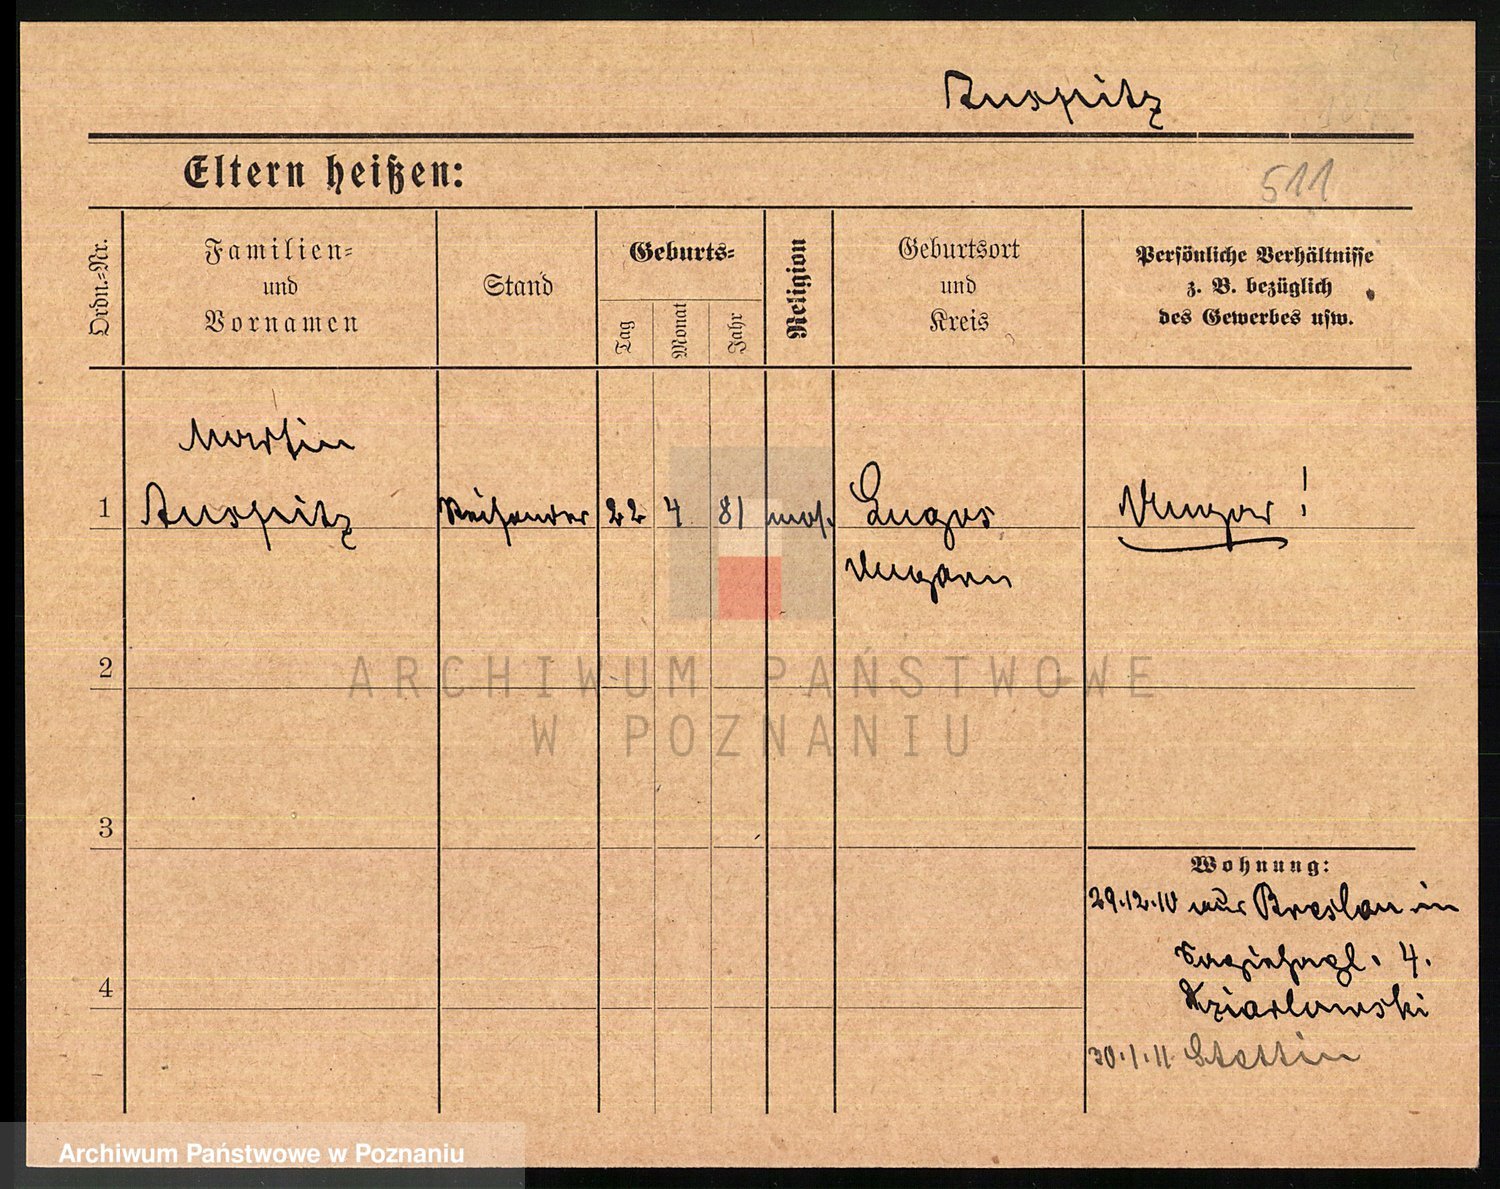 Auspitz
Eltern heißen:
511
Ordn.-Nr.
Familien-
und
Vornamen
Stand
Geburts-
Tag
Monat
Jahr
Religion
Geburtsort
und
Kreis
Persönliche Verhältnisse
z. B. bezüglich
des Gewerbes usw.
Martin
1 Auspitz Reisender 22 4 81 mos. Lugos Ungar!
Ungarn
2
ARCHIWUM PAŃSTWOWE
W POZNANIU
3
Wohnung:
29.12.10 aus Breslau in
4. 
4
30.1.11 Stettin
Archiwum Państwowe w Poznaniu